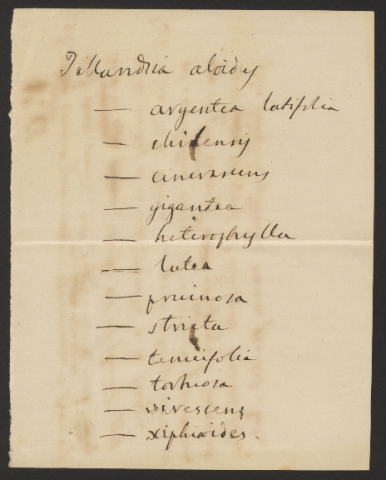 Tillandsia aloides
— argentea latifolia
— chilensis
— cinerascens
— gigantea
— heterophylla
— lutea
— pruinosa
— stricta
— tenuifolia
— tortuosa
— virescens
— xiphioides.